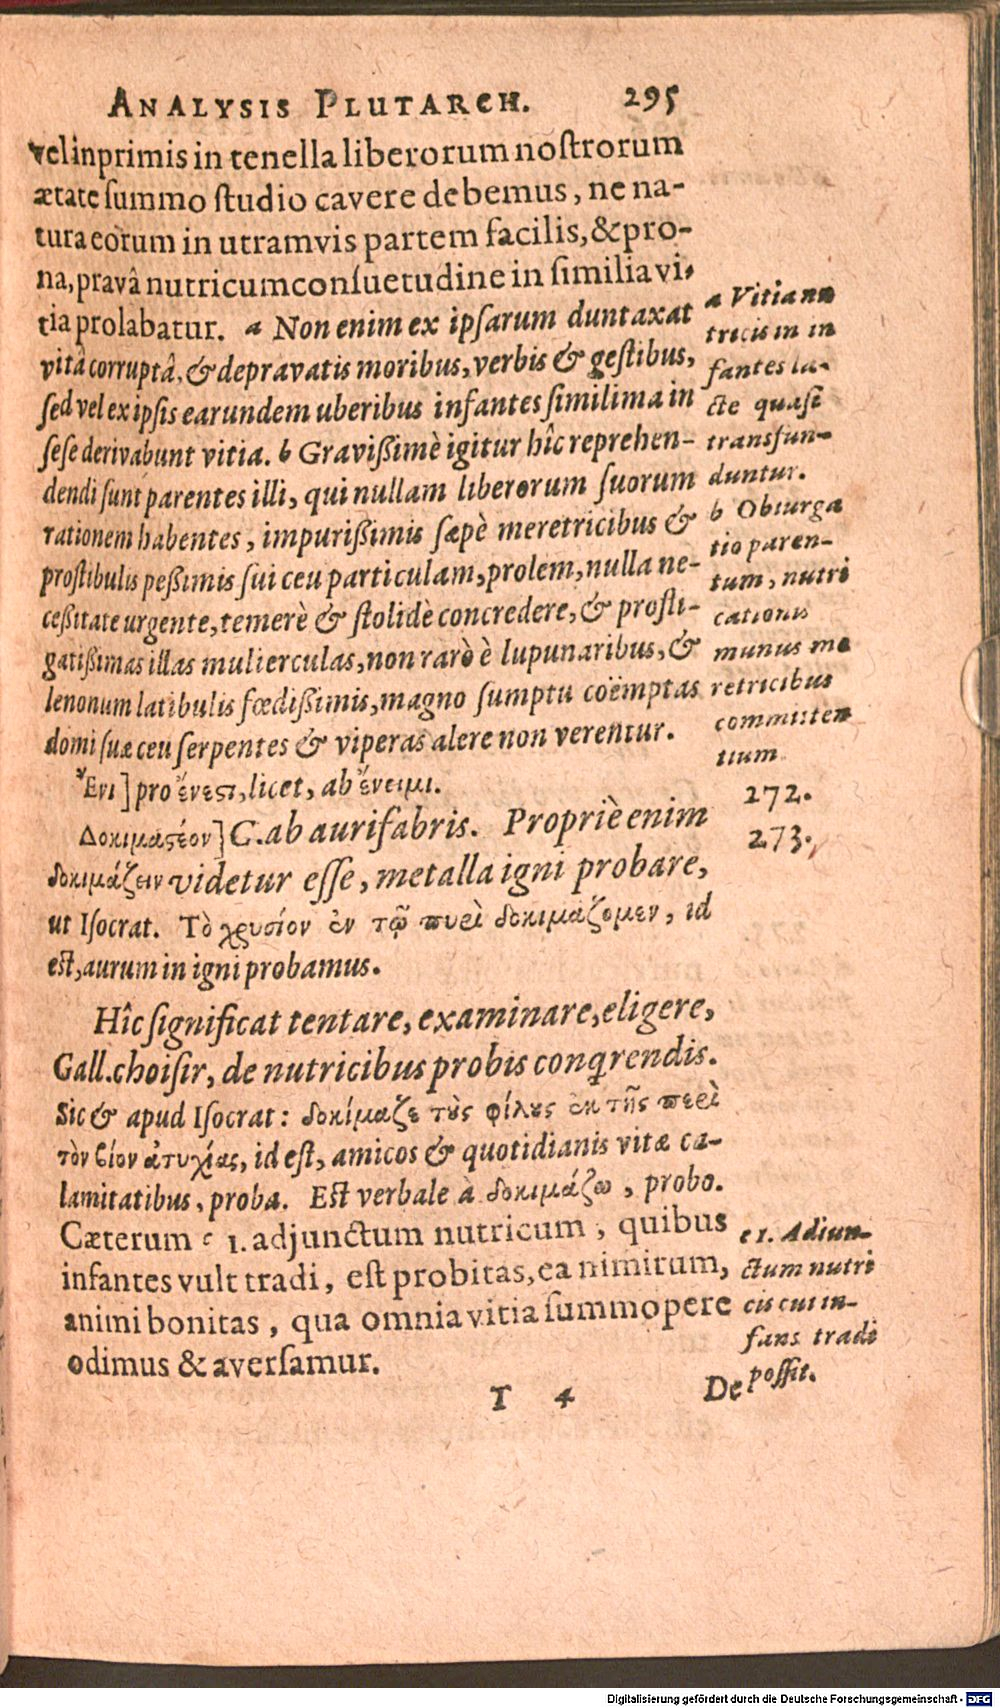 ANALYSIS PLUTARCH. 295
vel inprimis in tenella liberorum nostrorum
ætate summo studio cavere debemus, ne na-
tura eorum in utramvis partem facilis, & pro-
na, pravâ nutricum consuetudine in similia vi-
tia prolabatur. a Non enim ex ipsarum duntaxat
vitâ corruptâ, & depravatis moribus, verbis & gestibus,
sed vel ex ipsis earundem uberibus infantes similima in
sese derivabunt vitia. b Gravissimè igitur hîc reprehen-
dendi sunt parentes illi, qui nullam liberorum suorum
rationem habentes, impurissimis sæpè meretricibus &
prostibulis pessimis sui ceu particulam, prolem, nulla ne-
cessitate urgente, temerè & stolidè concredere, & profli-
gatissimas illas mulierculas, non rarò è lupunaribus, &
lenonum latibulis fœdissimis, magno sumptu coëmptas
domi suæ ceu serpentes & viperas alere non verentur.
Ἔνι] pro ἔνεστι, licet, ab ἔνειμι.
Δοκιμαστέον] C. ab aurifabris. Propriè enim
δοκιμάζειν videtur esse, metalla igni probare,
ut Isocrat. Τὸ χρυσίον ἐν τῷ πυρὶ δοκιμάζομεν, id
est, aurum in igni probamus.
Hîc significat tentare, examinare, eligere,
Gall. choisir, de nutricibus probis conqrendis.
Sic & apud Isocrat: δοκίμαζε τοὺς φίλους ἐκ τῆς περὶ
τὸν βίον ἀτυχίας, id est, amicos & quotidianis vitæ ca-
lamitatibus, proba. Est verbale à δοκιμάζω, probo.
Cæterum c 1. adjunctum nutricum, quibus
infantes vult tradi, est probitas, ea nimirum,
animi bonitas, qua omnia vitia summopere
odimus & aversamur.
T 4 De
a Vitia nu
tricis in in
fantes la-
cte quasi
transfun-
duntur.
b Obiurga
tio paren-
tum, nutri
cationis
munus me
retricibus
committen
tium
272.
273.
c 1. Adiun-
ctum nutri
cis cui in-
fans tradi
possit.
Digitalisierung gefördert durch die Deutsche Forschungsgemeinschaft - DFG